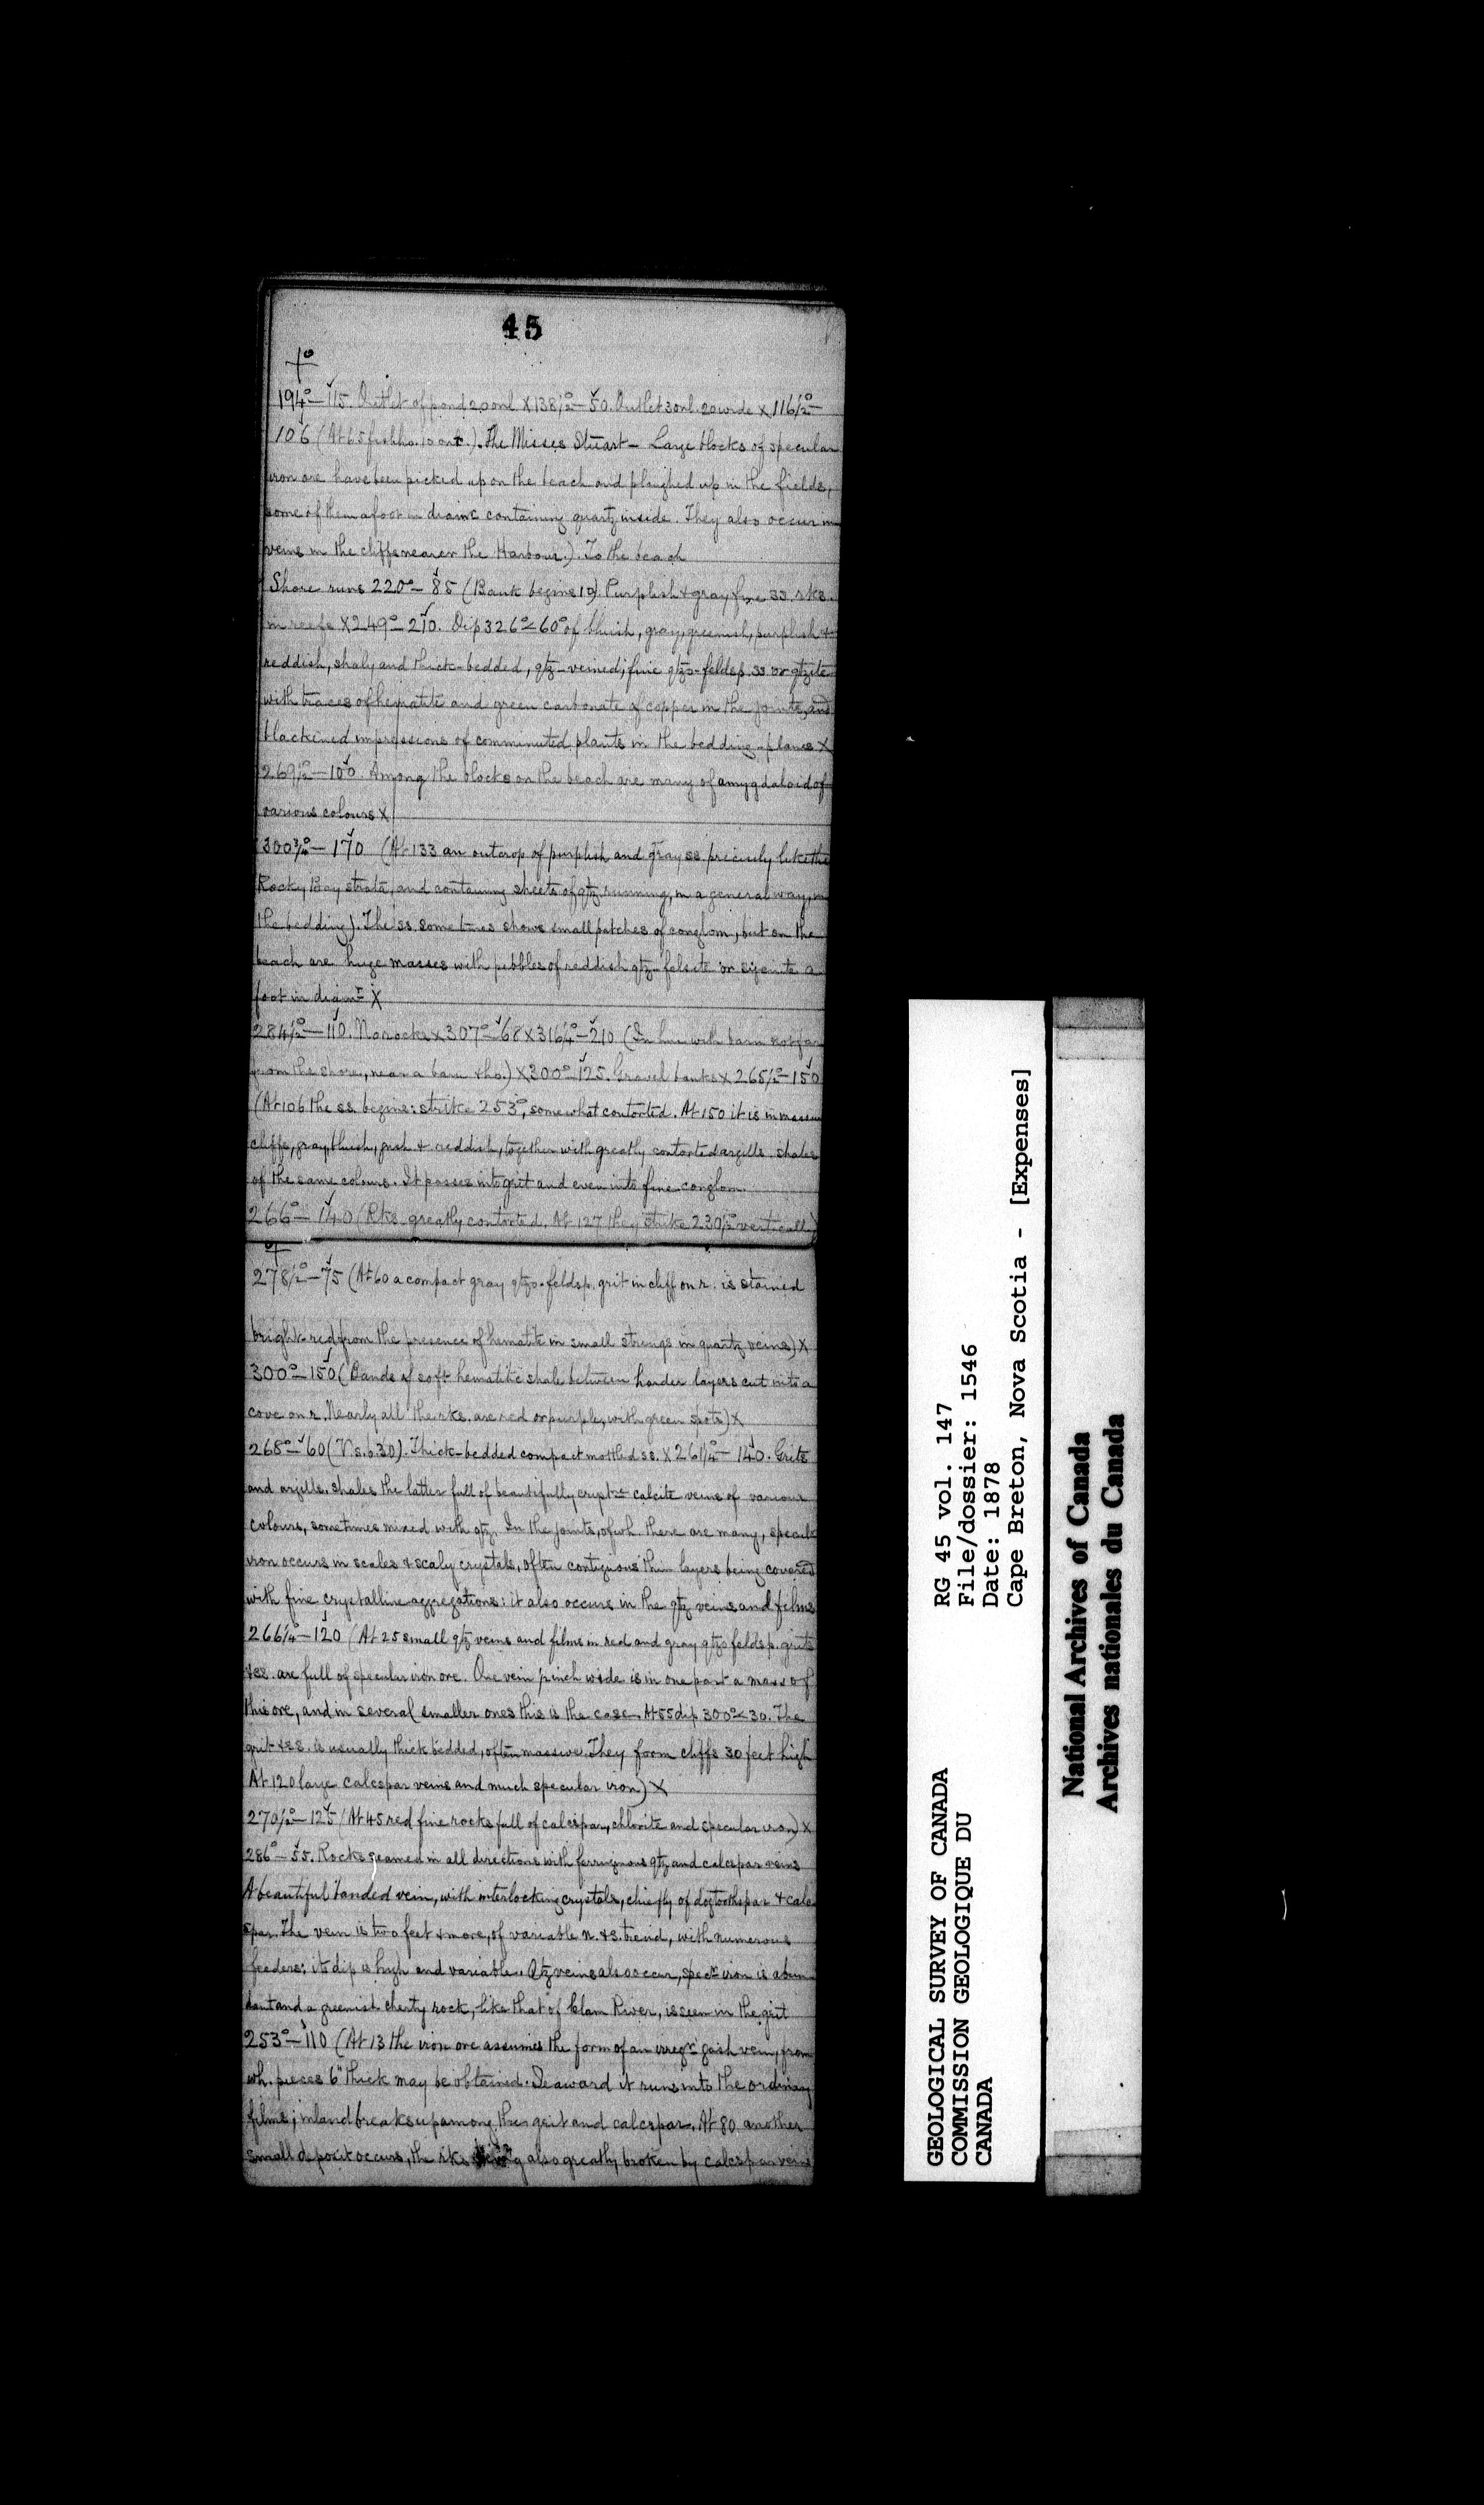 45
194°–115. Outlet of pond 20 on l. X 138½°–50. Outlet 30 n l. 20 wide X 116½°–
106 (At 65 fishho. 10 on r.). The Misses Stuart – Large blocks of specular
iron ore have been picked up on the beach and ploughed up in the fields,
some of them a foot in diam. containing quartz inside. They also occur in
veins in the cliffs nearer the Harbour.). To the beach
Shore runs 220°–85 (Bank begins 10). Purplish & gray fine ss. rks.
in reefs X 249°–210. Dip 326°<60° of bluish, gray, greenish, purplish &
reddish, shaly and thick-bedded, qtz-veined; fine qtzo-feldsp. ss or qtzite
with traces of hematite and green carbonate of copper in the joints, and
blackened impressions of comminuted plants in the bedding-planes X
269½°–100. Among the blocks on the beach are many of amygdaloid of
various colours X
300¾°–170 (At 133 an outcrop of purplish and gray ss. precisely like the
Rocky Bay strata, and containing sheets of qtz running, in a general way, in
the bedding). The ss. sometimes shows small patches of conglom, but on the
beach are huge masses with pebbles of reddish qtz-felsite or syenite a
foot in diamr X
284½°–110. No rocks X 307°–68 X 316¼°–210 (In line with barn not far
from the shore, near a barn & ho.) X 300°–125. Gravel banks X 265½°–150
(At 106 the ss. begins: strike 253°, somewhat contorted. At 150 it is in massive
cliffs, gray, bluish, & reddish, together with greatly contorted argills. shales
of the same colours. It passes into grit and even into fine conglom.
266°–140 (Rks. greatly contorted. At 127 they strike 230½° vertically)
278½°–75 (At 60 a compact gray qtzo-feldsp. grit in cliff on r. is stained
bright-red from the presence of hematite in small strings in quartz veins) X
300°–150 (Bands of soft hematitic shale between harder layers cut into a
cove on r. Nearly all the rks. are red or purple, with green spots) X
268°–60 (V s. 30). Thick-bedded compact mottled ss. X 261¼°–140. Grits
and argills. shales the latter full of beautifully crystd calcite veins of various
colours, sometimes mixed with qtz. In the joints, of wh. there are many, specular
iron occurs in scales & scaly crystals, often contiguous thin layers being covered
with fine crystalline aggregations: it also occurs in the qtz veins and films
266¼°–120 (At 25 small qtz veins and films in red and gray qtzo feldsp. grits
& ss. are full of specular iron ore. One vein inch wide is in one part a mass of
this ore, and in several smaller ones this is the case. At 55 dip 300°<30. The
grit & ss. is usually thick bedded, often massive. They form cliffs 30 feet high
At 120 large calcspar veins and much specular iron) X
270½°–125 (At 45 red fine rocks full of calcspar, chlorite and specular iron) X
286°–55. Rocks seamed in all directions with ferruginous qtz and calcspar veins
A beautiful banded vein, with interlocking crystals, chiefly of dogtoothspar & calc
spar. The vein is two feet & more, of variable n. & s. trend, with numerous
feeders; its dip is high and variable. Qtz veins also occur, specr iron is abun
dant and a greenish cherty rock, like that of Clam River, is seen in the grit
253°–110 (At 13 the iron ore assumes the form of an irregr gash vein, from
wh. pieces 6" thick may be obtained. Seaward it runs into the ordinary
films; inland breaks up among the grit and calcspar. At 80 another
small deposit occurs, the rks being also greatly broken by calcspar veins
GEOLOGICAL SURVEY OF CANADA
COMMISSION GEOLOGIQUE DU
CANADA
RG 45 vol. 147
File/dossier: 1546
Date: 1878
Cape Breton, Nova Scotia - [Expenses]
National Archives of Canada
Archives nationales du Canada